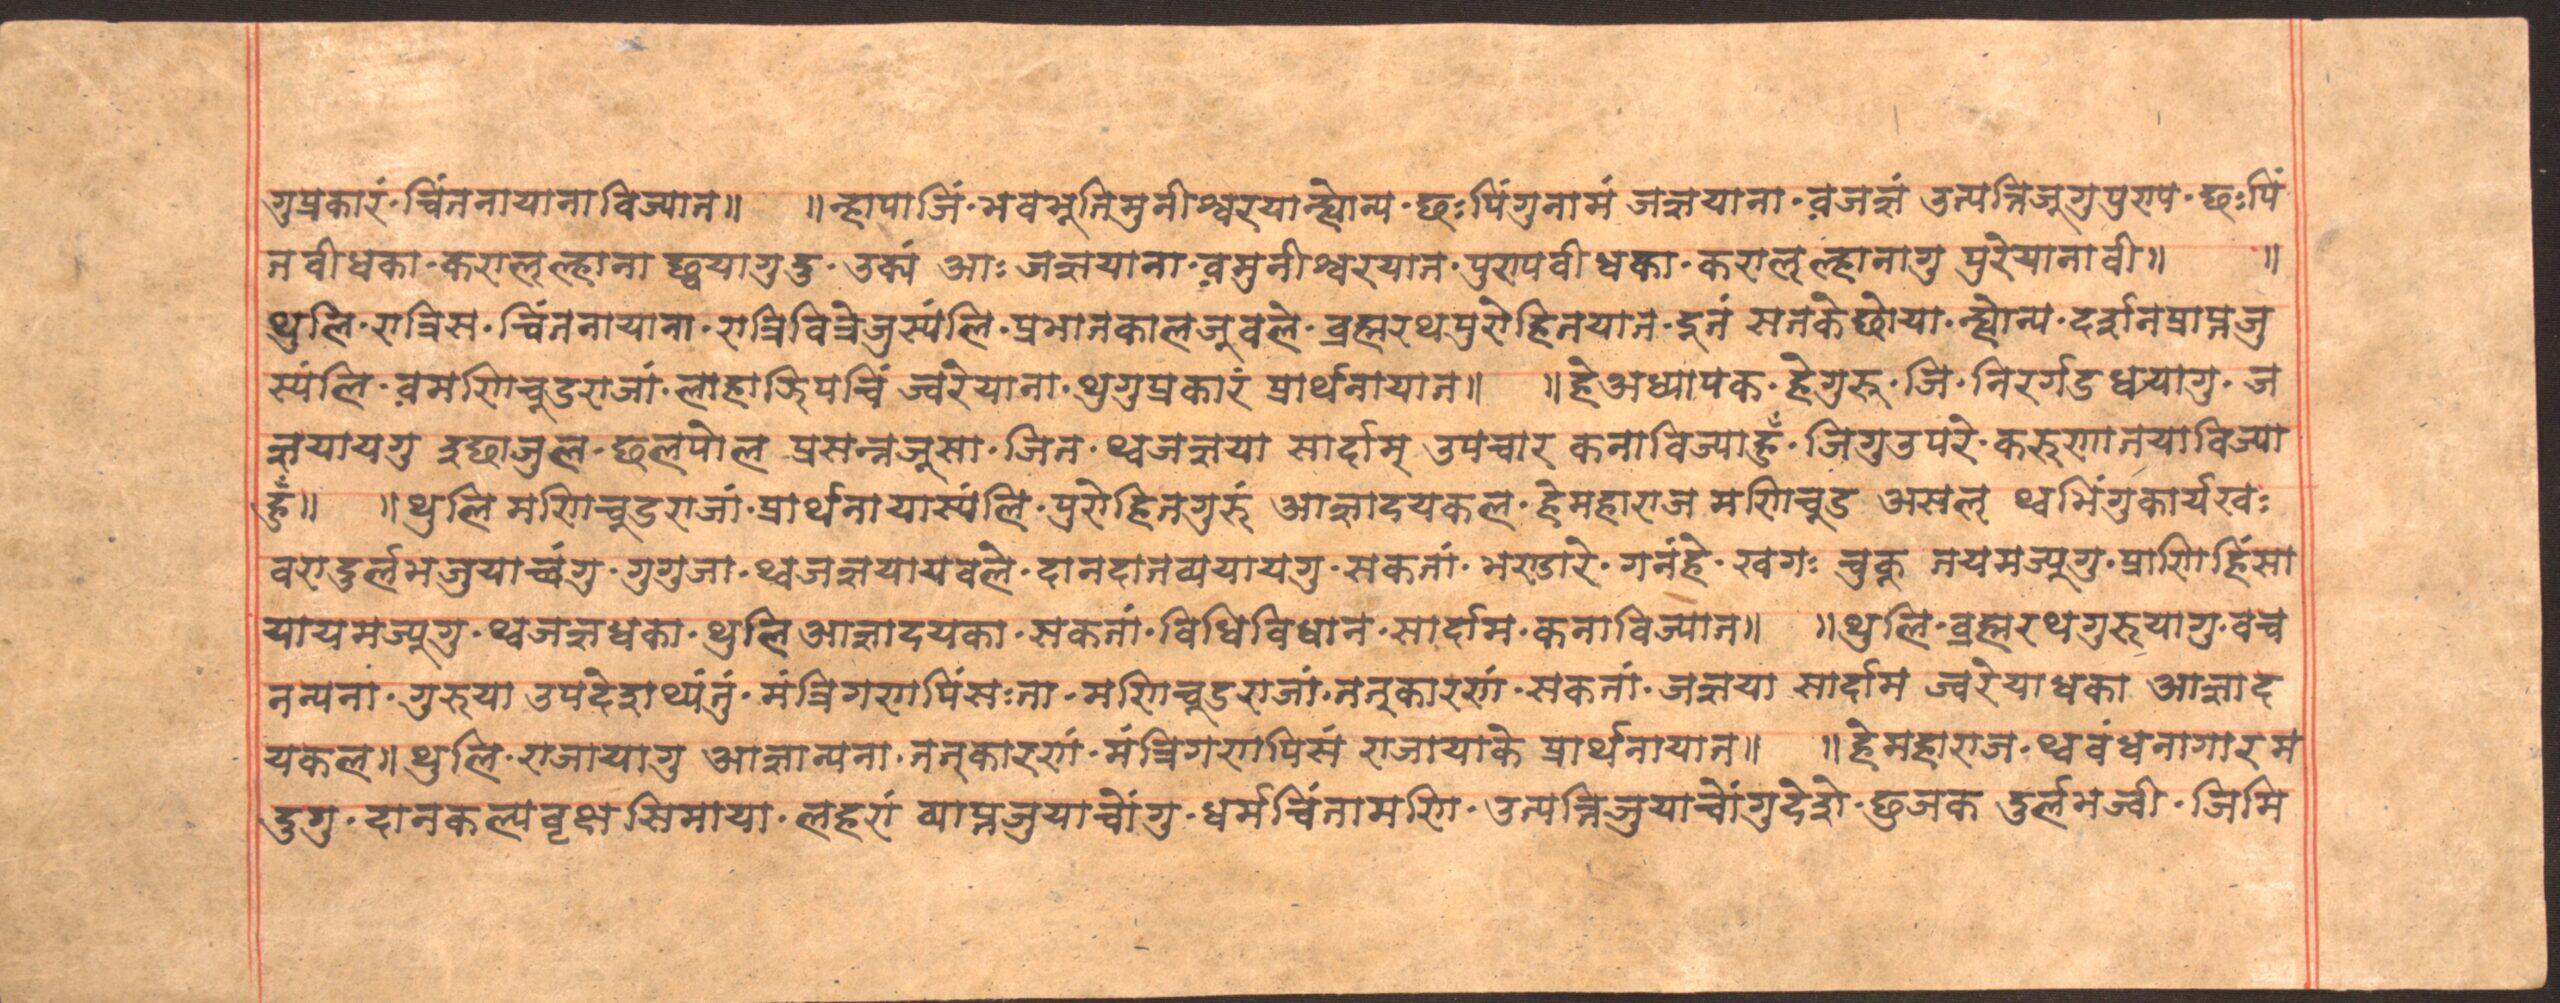 गुप्रकारं·चिंतनायानाविज्यात॥ ॥न्हापाजिं·भवभूतिमुनीश्वरयान्ह्योन्य·छःपिंगुनामं जज्ञयाना·व़जज्ञं उत्पन्निजुगुपुराप·छःपिं
त वीधका·करालल्हाना छ्वयागुदु·उक्यं आः जज्ञयाना·व़मुनीश्वरयात·पुरापवीधका·करालल्हानागु पुरेयानावी॥ ॥
थुलि·रात्रिस·चिंतनायाना·रात्रिवित्रेजुस्यंलि·प्रभातकालजुवले·ब्रह्मरथपुरोहितयात·दूतं सतकेछोया·न्ह्योन्य·दर्शनप्राप्तजु
स्यंलि·व़मणिचुडराजां·लाहाज़िपचिं ज्वरेयाना·थुगुप्रकारं प्रार्थनायात॥ ॥हेअध्यापक·हेगुरु·जि·निरर्गड धयागु·ज
ज्ञयायगु इछाजुल·छलपोल प्रसन्नजुसा·जित·थ्वजज्ञया सार्दाम् उपचार कनाविज्याहुँ·जिगुउपरे·करुणातयाविज्या
हुँ॥ ॥थुलि मणिचुडराजां·प्रार्थनायास्यंलि·पुरोहितगुरुं आज्ञादयकल·हेमहाराज मणिचुड असल् थ्वभिंगुकार्यखः
वरादुर्लभजुयाच्वंगु·गुगुजा·थ्वजज्ञयायवले·दानदातव्ययायगु·सकतां·भण्डारे·गनंहे·खगः चुकु तयमज्यूगु·प्राणिहिंसा
यायमज्यूगु·थ्वजज्ञधका·थुलिआज्ञादयका·सकतां·विधिविधान·सार्दाम·कनाविज्यात॥ ॥थुलि·ब्रह्मरथगुरुयागु·वच
नन्यना·गुरुया उपदेशथ्यंतुं·मंत्रिगणपिंसःता·मणिचुडराजां·तत्कारणं·सकतां·जज्ञया सार्दाम ज्वरेयाधका आज्ञाद
यकल॥थुलि·राजायागु आज्ञान्यना·तत्कारणं·मंत्रिगणपिसं राजायाके प्रार्थनायात॥ ॥हेमहाराज·थ्वबंधनागारम
दुगु·दानकल्पवृक्षसिमाया·लहरां व्याप्तजुयाचोंगु·धर्मचिंतामणि·उत्पन्निजुयाचोंगुदेशे·छुजक दुर्लभज्वी·जिमि